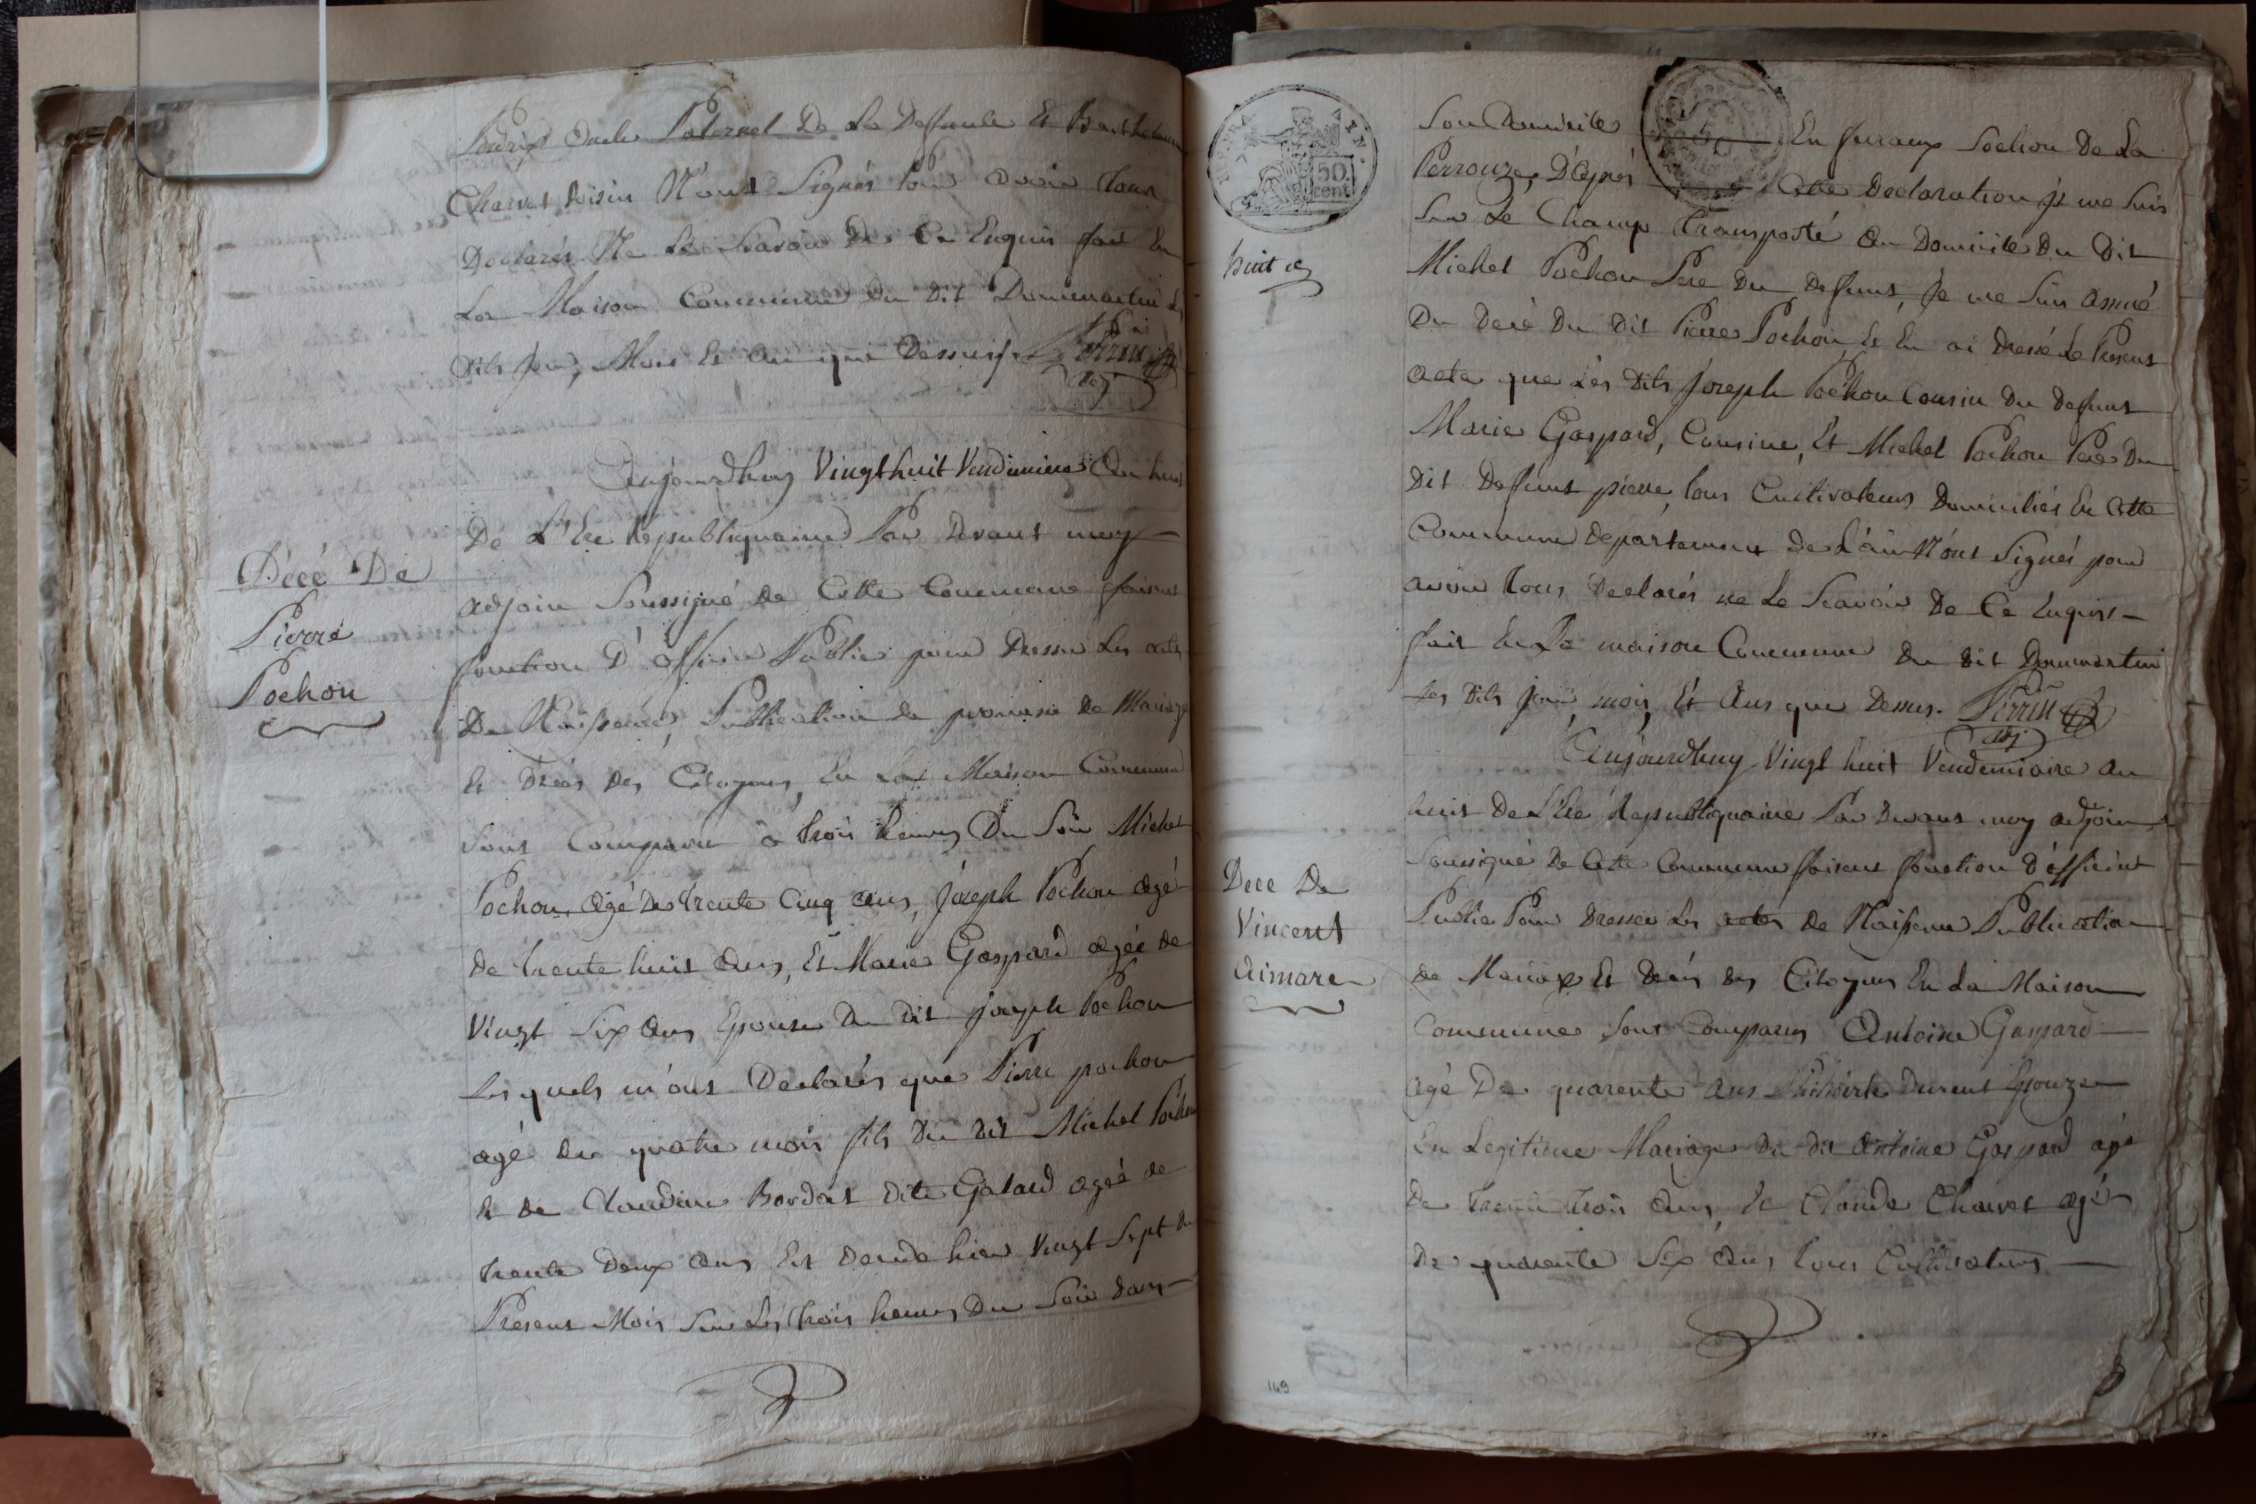 oncle Paternel De La Deffunte Et Barthelemi
Charvet voisin N'ont Signés Pour avoir tous
Declarés Ne Le Scavoir De Ce Enquis fait En
La Maison Commune Du Dit Dommartin Les
Dits jour, Mois Et an que Dessus. Perrin
adj
Décé De
Pierre
Pochon
Aujourdhuy Vingt huit Vendimiere An huit
De L'Ere Republiquaine Par Devant moy
adjoin Soussigné De Cette Commune faisant
fonction D'officier Public pour Dresser Les actes
De Naissance, Publication de promesse De Mariage
Et Décès Des Citoyens, En La Maison Commune
Sont Comparu a trois heures Du Soir Michel
Pochon, agé De trente Cinq ans, Joseph Pochon agé
de trente huit ans, Et Marie Gaspard agée de
Vingt Six ans Epouse Du dit Joseph Pochon
Les quels m'ont Declarés que Pierre pochon
agé de quatre mois fils Du dit Michel Pochon
Et De Claudine Bordat dite Galard agée de
trente Deux ans Est Decedé hier Vingt Sept du
Present Mois Sur Les trois heures Du Soir dans
RÉP. FRA.
AIN.
50.
cent.
huit c
Son Domicile En Pochon De La
Perrouze, D'après Cette Declaration je me Suis
Sur Le Champ Transporté au Domicile Du Dit
Michel Pochon Pere Du defunt, Je me Suis assuré
Du Décé Du Dit Pierre Pochon Et En ai Dressé Le Present
acte que Les Dits Joseph Pochon Cousin Du defunt
Marie Gaspard, Cousine, Et Michel Pochon Pere Du
Dit Defunt pierre, tous Cultivateurs Domiciliés En Cette
Commune departement de L'ain N'ont Signés pour
avoir tous Declarés ne Le Scavoir De Ce Enquis
fait En La maison Commune du dit Dommartin
Les Dits jour, mois, Et Ans que Dessus. Perrin
adj
Decé De
Vincent
Aimare
Aujourdhuy Vingt huit Vendemiaire an
huit De L'Ere Republiquaine Par Devant moy adjoin
Soussigné De Cette Commune faisant fonction D'officier
Public Pour Dresser Les actes de Naissance Publication
de Mariage Et Décès des Citoyens En La Maison
Commune Sont Comparus Antoine Gaspard
agé De quarente ans Durent Epouze
En Legitime Mariage Du dit Antoine Gaspard agé
De trente trois ans, Et Claude Charvet agé
De quarente Six ans tous Cultivateurs
149